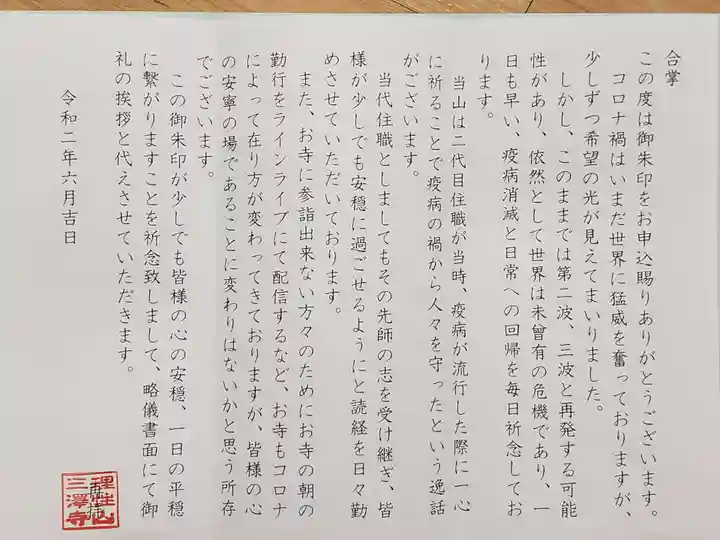 合掌
この度は御朱印をお申込賜りありがとうございます。
コロナ禍はいまだ世界に猛威を奮っておりますが、
少しずつ希望の光が見えてまいりました。
しかし、このままでは第二波、三波と再発する可能
性があり、依然として世界は未曾有の危機であり、一
日も早い、疫病消滅と日常への回帰を毎日祈念してお
ります。
当山は二代目住職が当時、疫病が流行した際に一心
に祈ることで疫病の禍から人々を守ったという逸話
がございます。
当代住職としましてもその先師の志を受け継ぎ、皆
様が少しでも安穏に過ごせるようにと読経を日々勤
めさせていただいております。
また、お寺に参詣出来ない方々のためにお寺の朝の
勤行をラインライブにて配信するなど、お寺もコロナ
によって在り方が変わってきておりますが、皆様の心
の安寧の場であることに変わりはないかと思う所存
でございます。
この御朱印が少しでも皆様の心の安穏、一日の平穏
に繋がりますことを祈念致しまして、略儀書面にて御
礼の挨拶と代えさせていただきます。
令和二年六月吉日
理性山
三澤寺